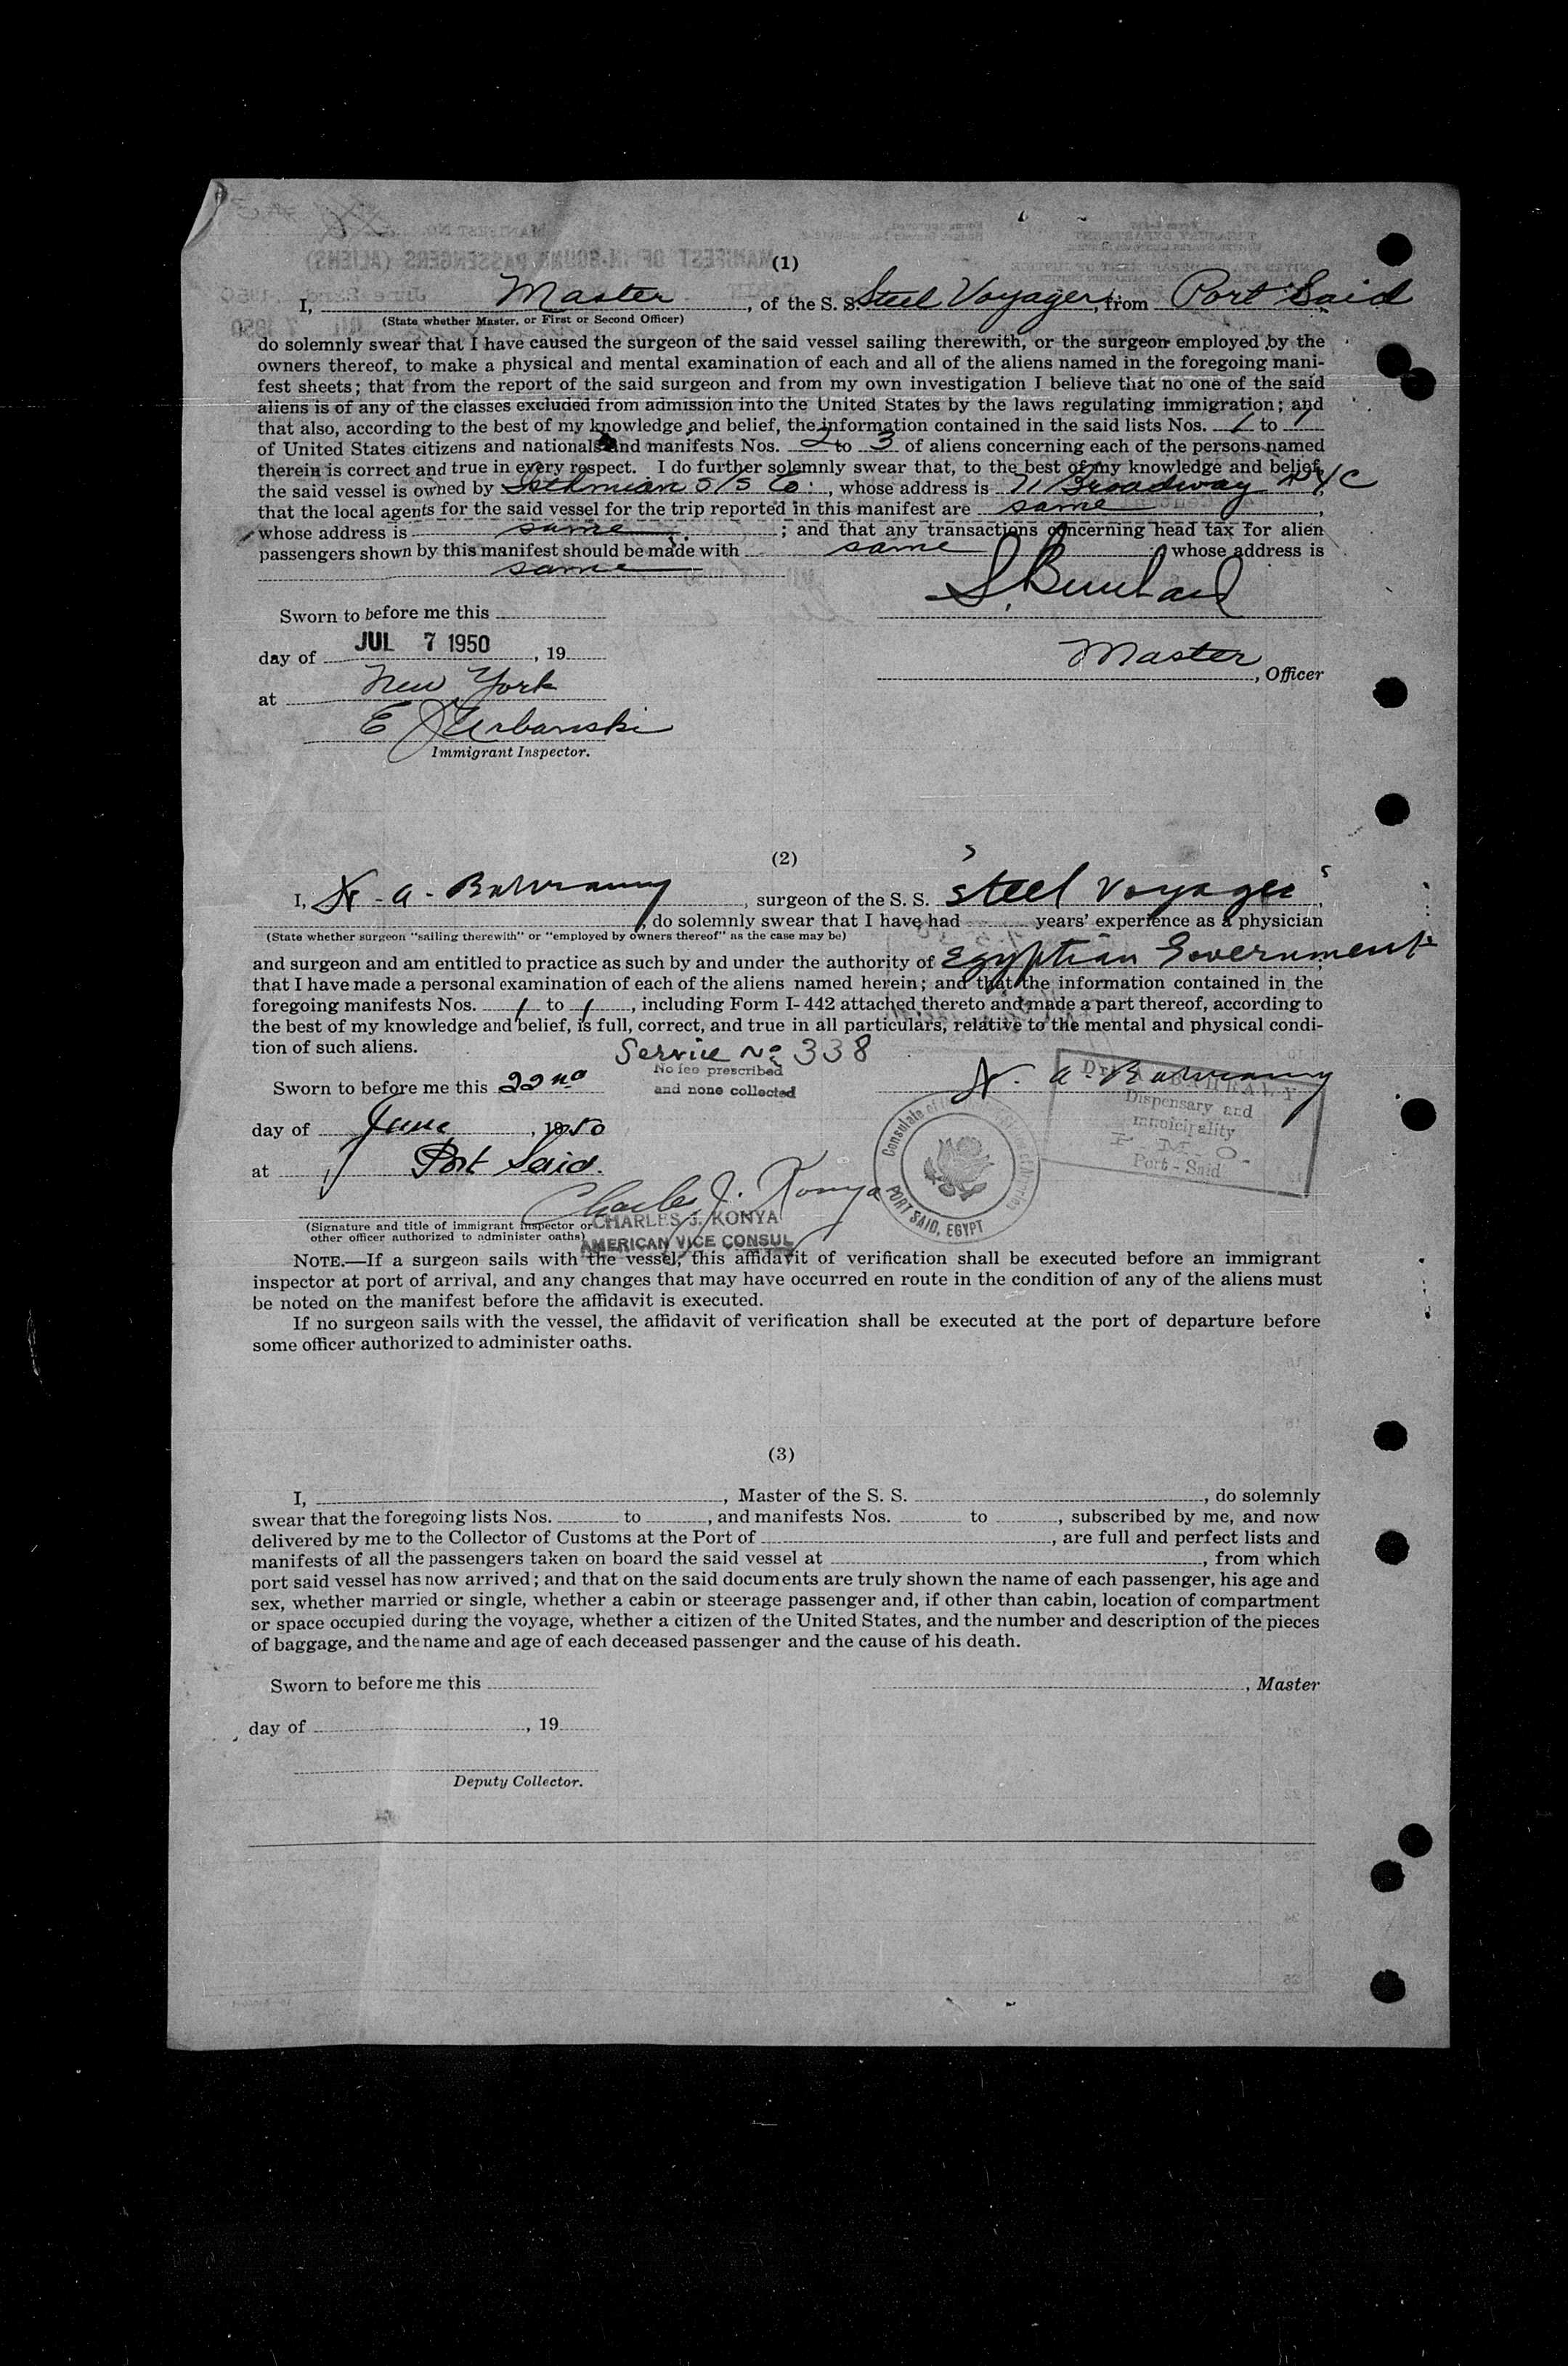 (1)
I, Master, of the S. S. Steel Voyager, from Port Said
(State whether Master, or First or Second Officer)
do solemnly swear that I have caused the surgeon of the said vessel sailing therewith, or the surgeon employed by the
owners thereof, to make a physical and mental examination of each and all of the aliens named in the foregoing mani-
fest sheets; that from the report of the said surgeon and from my own investigation I believe that no one of the said
aliens is of any of the classes excluded from admission into the United States by the laws regulating immigration; and
that also, according to the best of my knowledge and belief, the information contained in the said lists Nos. 1 to 1
of United States citizens and nationals and manifests Nos. 2 to 3 of aliens concerning each of the persons named
therein is correct and true in every respect. I do further solemnly swear that, to the best of my knowledge and belief,
the said vessel is owned by Isthmian S/S Co., whose address is 71 Broadway NYC
that the local agents for the said vessel for the trip reported in this manifest are same,
whose address is same; and that any transactions concerning head tax for alien
passengers shown by this manifest should be made with same whose address is
same
Sworn to before me this
day of JUL 7 1950, 19
Master, Officer
at New York
E J Urbanski
Immigrant Inspector.
(2)
I, N. A. , surgeon of the S. S. "Steel Voyager",
, do solemnly swear that I have had years' experience as a physician
(State whether surgeon "sailing therewith" or "employed by owners thereof" as the case may be)
and surgeon and am entitled to practice as such by and under the authority of Egyptian Government
that I have made a personal examination of each of the aliens named herein; and that the information contained in the
foregoing manifests Nos. 1 to 1, including Form I-442 attached thereto and made a part thereof, according to
the best of my knowledge and belief, is full, correct, and true in all particulars, relative to the mental and physical condi-
tion of such aliens.
Service No 338
No fee prescribed
and none collected
Sworn to before me this 22nd
day of June, 1950
at Port Said.
Dispensary and
municipality
P. M. O.
Port-Said
Consulate of
PORT SAID, EGYPT
Charles J. Konya
CHARLES J. KONYA
AMERICAN VICE CONSUL
(Signature and title of immigrant inspector or
other officer authorized to administer oaths)
NOTE.—If a surgeon sails with the vessel, this affidavit of verification shall be executed before an immigrant
inspector at port of arrival, and any changes that may have occurred en route in the condition of any of the aliens must
be noted on the manifest before the affidavit is executed.
If no surgeon sails with the vessel, the affidavit of verification shall be executed at the port of departure before
some officer authorized to administer oaths.
(3)
I, , Master of the S. S. , do solemnly
swear that the foregoing lists Nos. to , and manifests Nos. to , subscribed by me, and now
delivered by me to the Collector of Customs at the Port of , are full and perfect lists and
manifests of all the passengers taken on board the said vessel at , from which
port said vessel has now arrived; and that on the said documents are truly shown the name of each passenger, his age and
sex, whether married or single, whether a cabin or steerage passenger and, if other than cabin, location of compartment
or space occupied during the voyage, whether a citizen of the United States, and the number and description of the pieces
of baggage, and the name and age of each deceased passenger and the cause of his death.
Sworn to before me this
, Master
day of , 19
Deputy Collector.